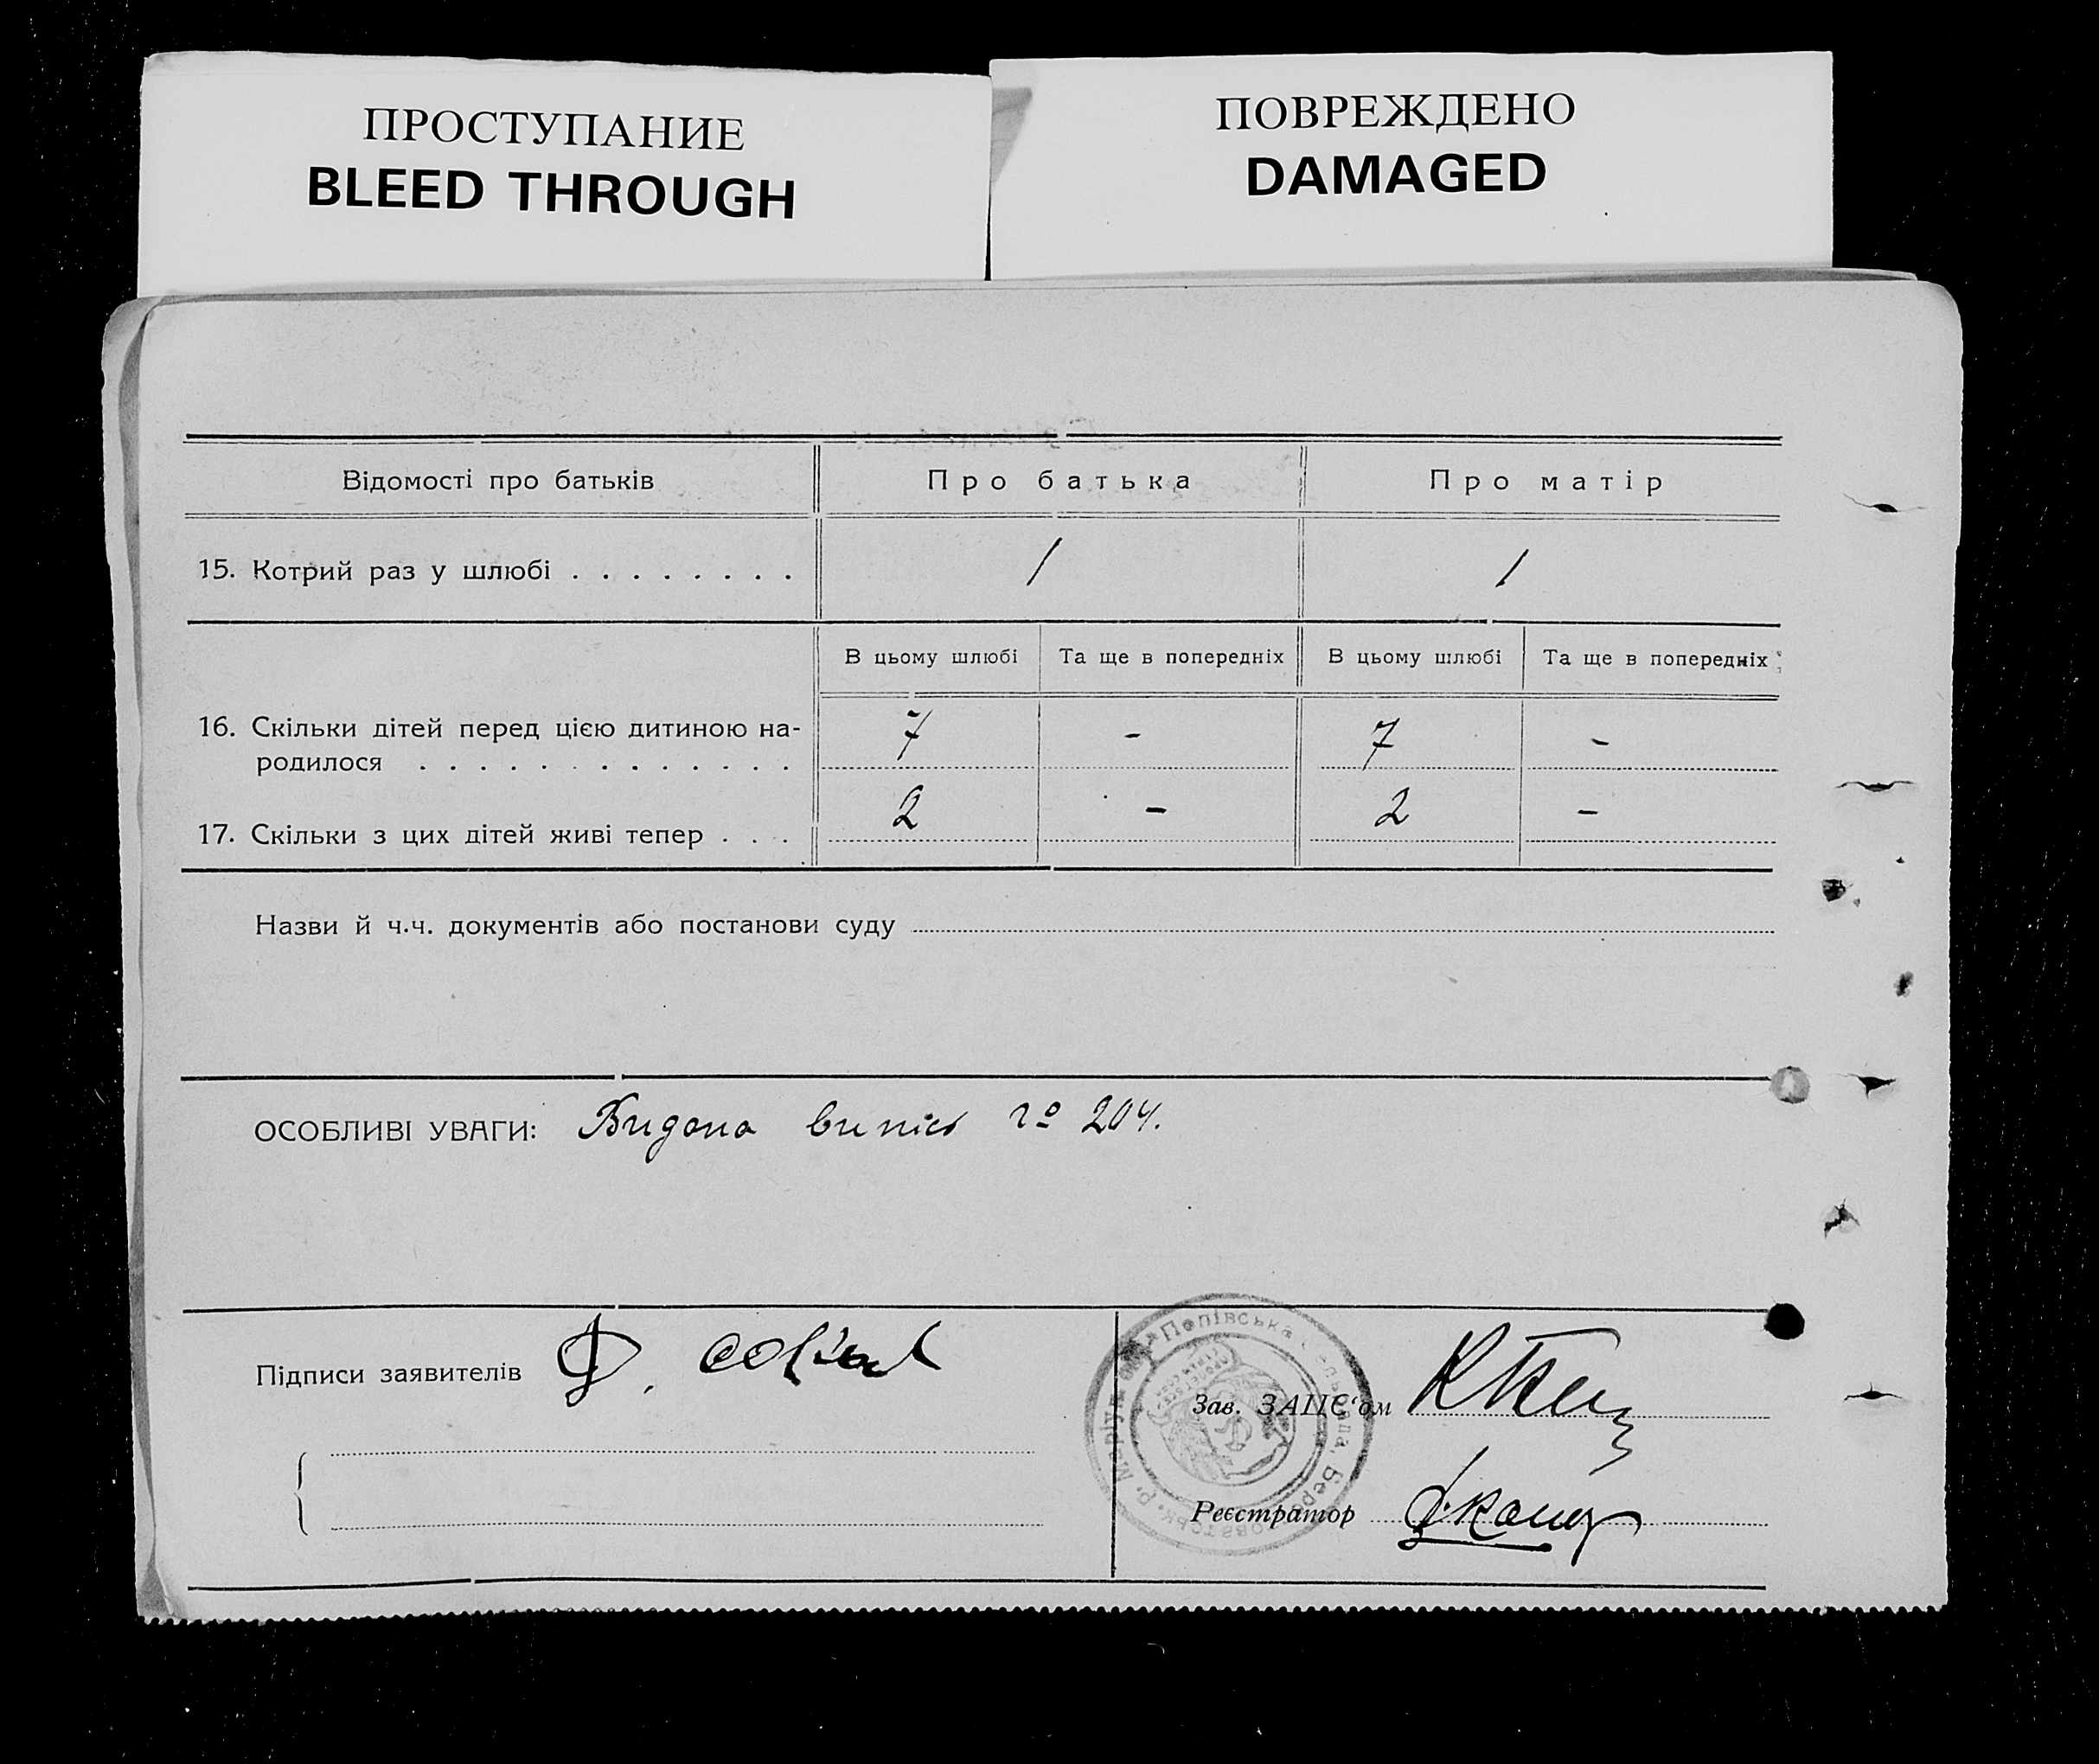 ПРОСТУПАНИЕ
BLEED THROUGH
ПОВРЕЖДЕНО
DAMAGED
Відомості про батьків
Про батька
Про матір
15. Котрий раз у шлюбі . . . . . . . .
1
1
В цьому шлюбі
Та ще в попередніх
В цьому шлюбі
Та ще в попередніх
16. Скільки дітей перед цією дитиною на-
родилося . . . . . . . . . . . . .
7
-
7
-
17. Скільки з цих дітей живі тепер . . .
2
-
2
-
Назви й ч.ч. документів або постанови суду
ОСОБЛИВІ УВАГИ: Видано випис № 204.
Підписи заявителів
Ф.
Зав. ЗАЦС'ом
Реєстратор
Попівська